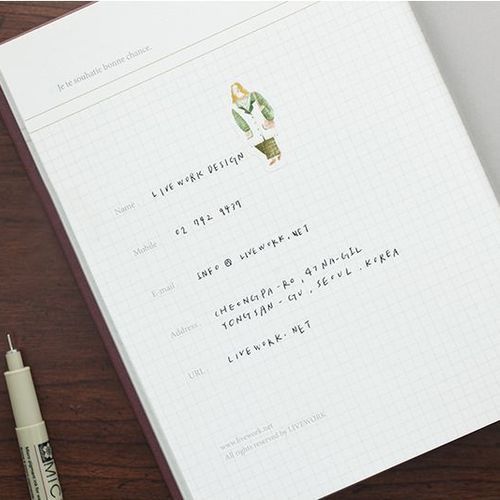 Je te souhaite bonne chance.
Name. LIVEWORK DESIGN
Mobile. 02 792 9437
E-mail. INFO @ LIVEWORK.NET
Address. CHEONGPA-RO, 47 NA-GIL
YONGSAN-GU, SEOUL, KOREA
URL. LIVEWORK.NET
www.livework.net
All rights reserved by LIVEWORK.
MIC